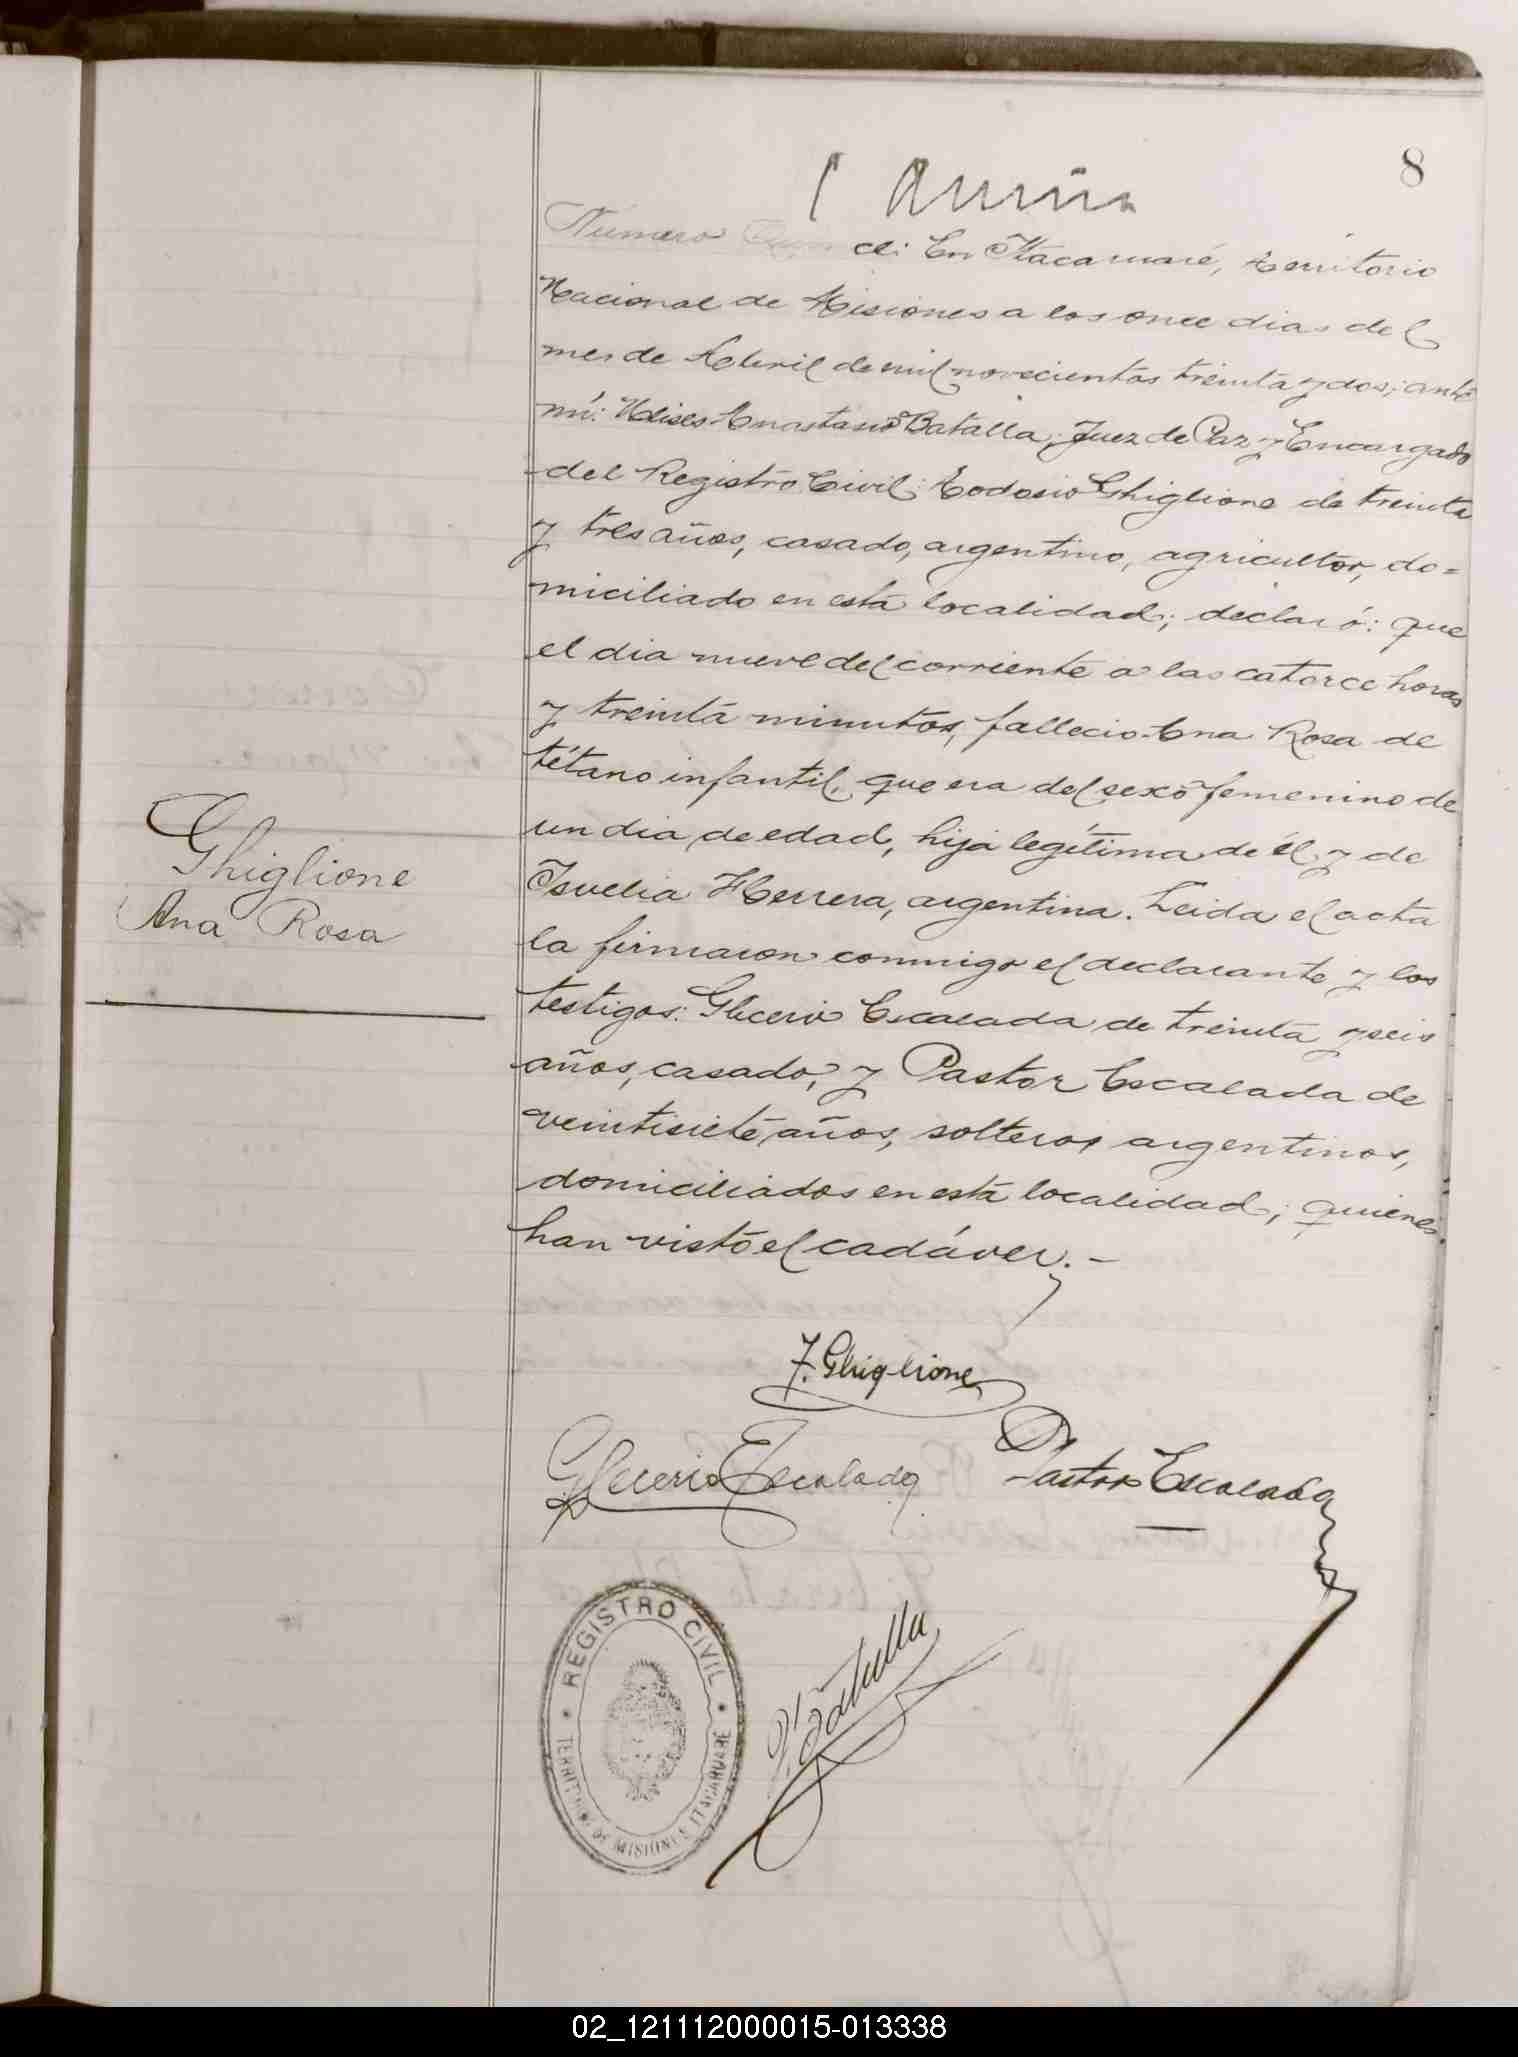 8
Número ce: En Itacaruaré, territorio
Nacional de Misiones a los once dias del
mes de Abril de mil novecientos treinta y dos; ante
mí: Ulises Anastasio Batalla, Juez de Paz y Encargado
del Registro Civil: Todosio Ghiglione de treinta
y tres años, casado, argentino, agricultor, do=
miciliado en está localidad; declaró: que
el dia nueve del corriente a las catorce horas
y treinta minutos, fallecio Ana Rosa de
tétano infantil, que era del sexo femenino de
un dia de edad, hija legítima de él y de
Isuelia Herrera, argentina. Leida el acta
la firmaron conmigo el declarante y los
testigos: Glicerio Escalada de treinta y seis
años, casado, y Pastor Escalada de
veintisiete años, soltero, argentinos,
domiciliados en está localidad; quienes
han visto el cadáver.-
Ghiglione
Ana Rosa
T. Ghiglione
Glicerio Escalada Pastor Escalada
Batalla
REGISTRO CIVIL
TERRITORIO DE MISIONES ITACARUARÉ
02_121112000015-013338